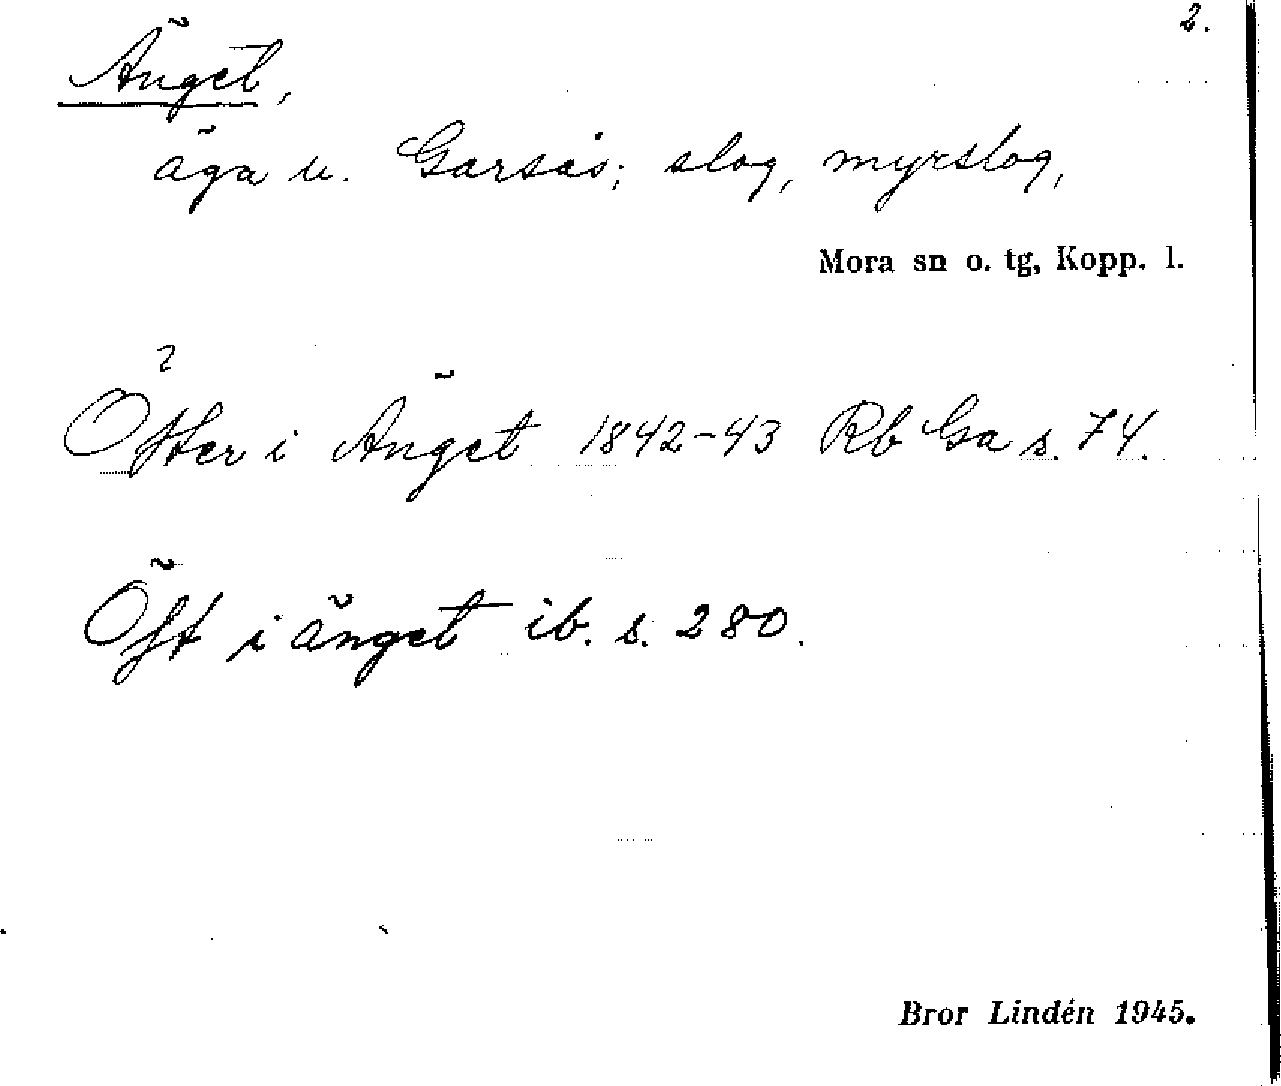 2.
Änget,
äga u. Garsås; slog, myrslog,
Mora sn o. tg, Kopp. l.
Öfter i Änget 1842-43 Rb Ga s. 74.
Öft i änget ib. s. 280.
Bror Lindén 1945.